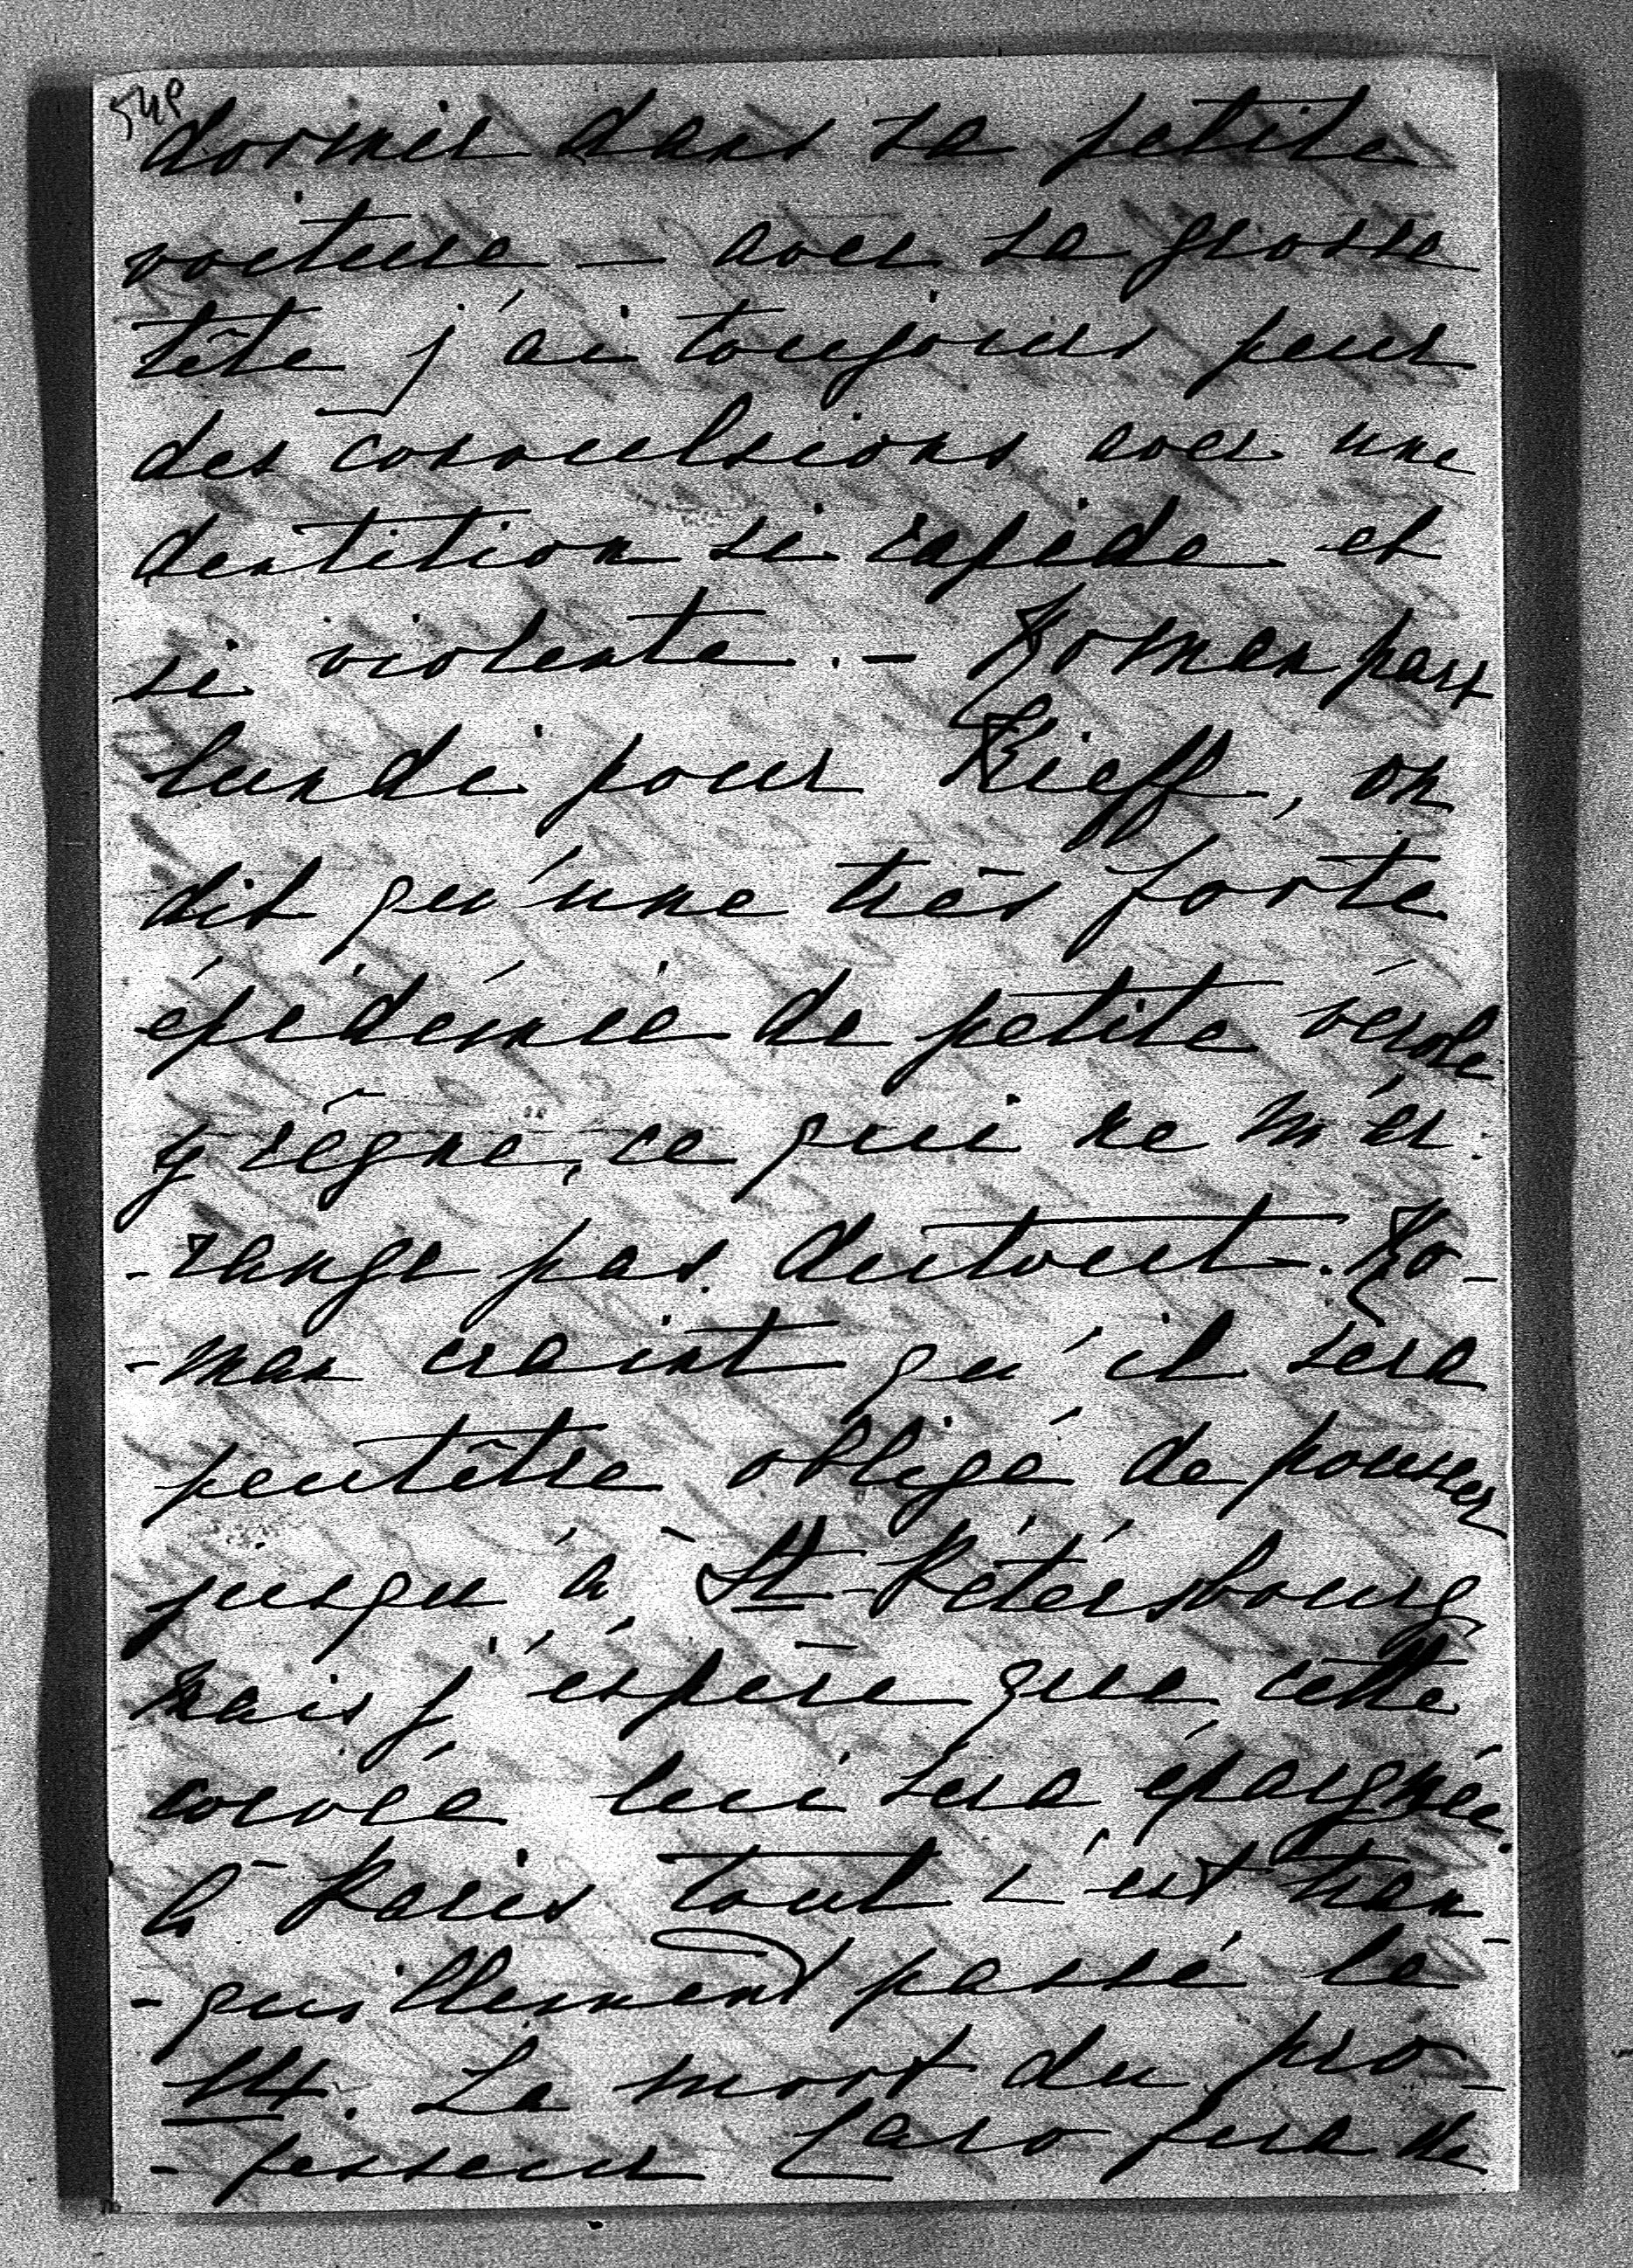 dormir dans sa petite
voiture – avec sa grosse
tête j'ai toujours peur
des convulsions avec une
dentition si rapide et
si violente. – Roman part
lundi pour Kieff, on
dit qu'une très forte
épidémie de petite vérole
y règne, ce qui ne m'ar-
-range pas dutout. – Ro-
-man craint qu'il sera
peutêtre obligé de pousser
jusqu'à St-Pétérsbourg
mais j'éspère que cette
corvée lui sera épargnée.
à Paris tout s'est tran-
-quillement passé le
14. La mort du pro-
-fesseur Caro fera de